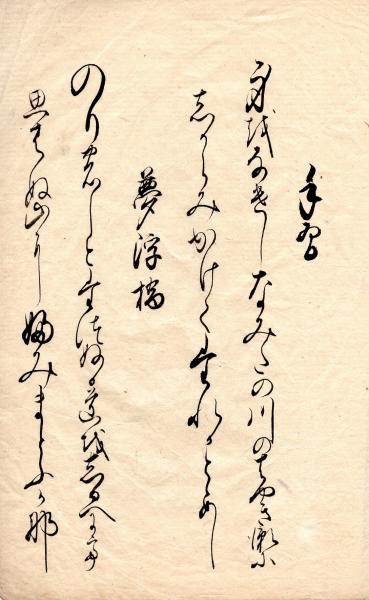 手習
身をなけしなみたの川のはやき瀬に
しからみかけてたれかとゝめし
夢浮橋
のりのしとたつぬる道をしるへにて
思はぬ山にふみまとふかな